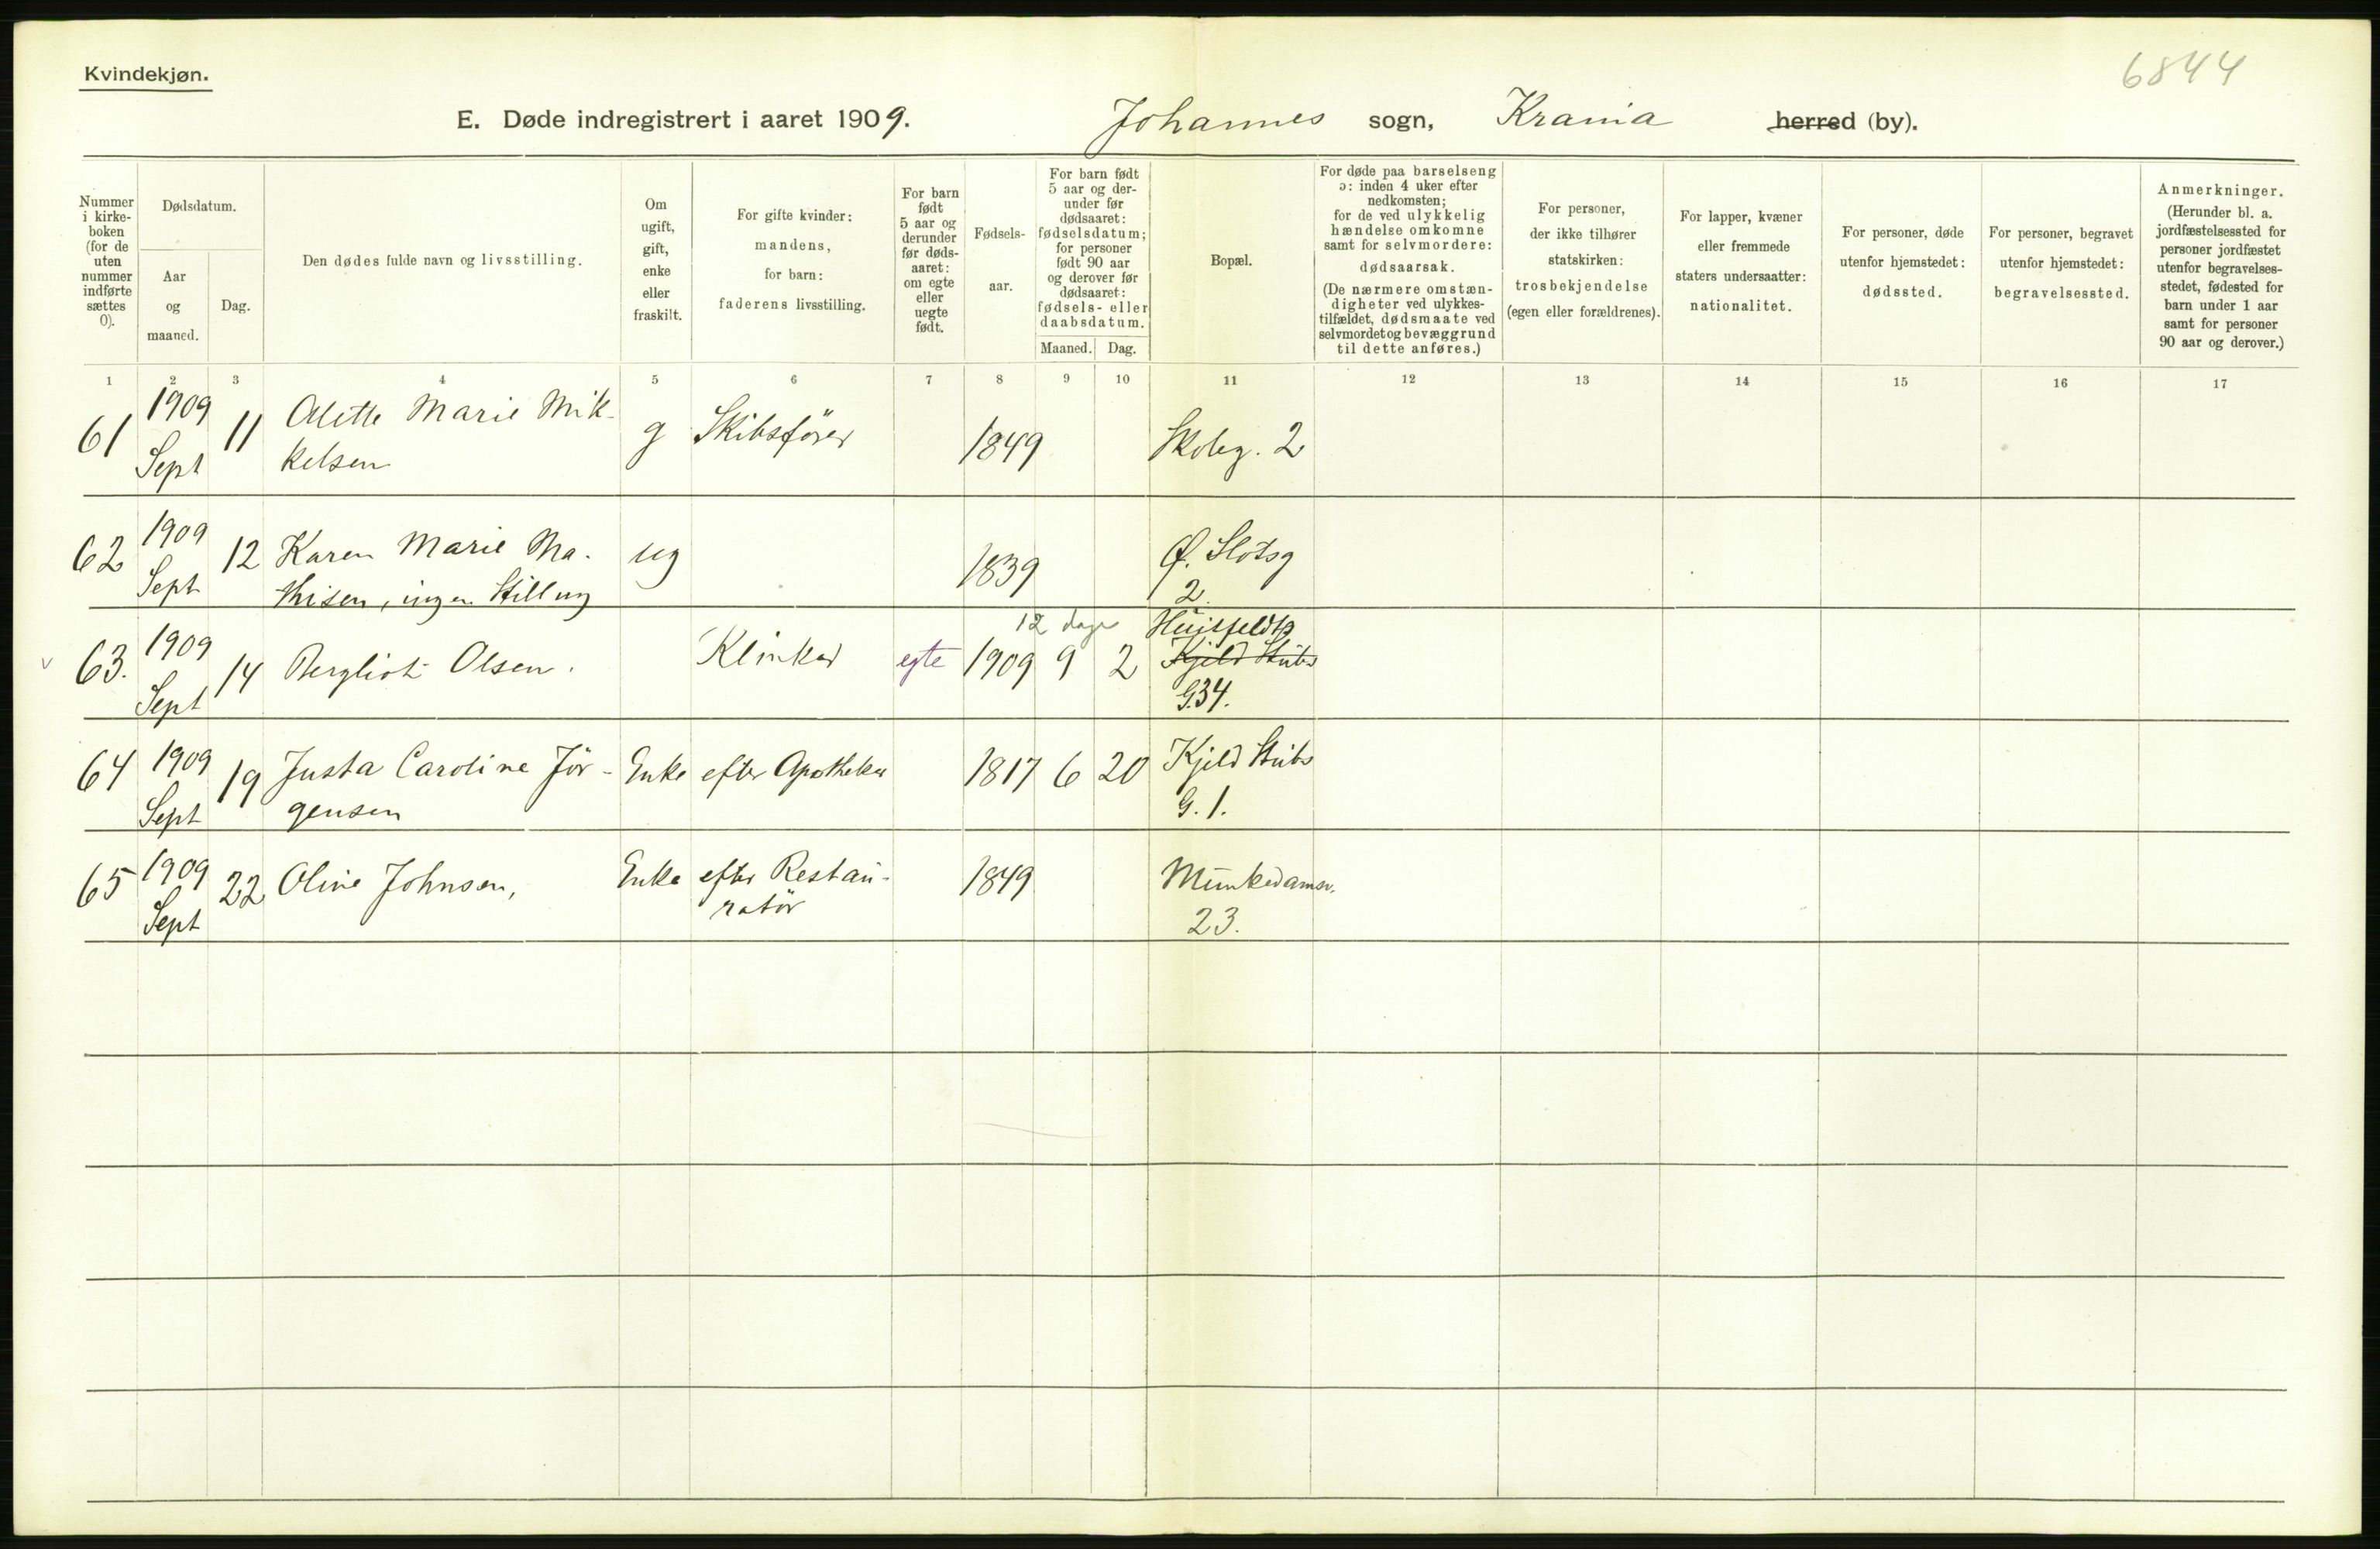 Kvindekjøn.
6844
E. Døde indregistrert i aaret 1909.
Johannes sogn, Krania herred (by).
Nummer i kirke- boken (for de uten nummer indførte sættes 0).
Dødsdatum.
Aar og maaned.
Dag.
Den dødes fulde navn og livsstilling.
Om ugift, gift, enke eller fraskilt.
For gifte kvinder: mandens, for barn: faderens livsstilling.
For barn født 5 aar og derunder før døds- aaret: om egte eller uegte født.
Fødsels- aar.
For barn født 5 aar og der- under før dødsaaret: fødselsdatum; for personer født 90 aar og derover før dødsaaret: fødsels- eller daabsdatum.
Maaned. Dag.
Bopæl.
For døde paa barselseng ɔ: inden 4 uker efter nedkomsten; for de ved ulykkelig hændelse omkomne samt for selvmordere: dødsaarsak. (De nærmere omstæn- digheter ved ulykkes- tilfældet, dødsmaate ved selvmordet og bevæggrund til dette anføres.)
For personer, der ikke tilhører statskirken: trosbekjendelse (egen eller forældrenes).
For lapper, kvæner eller fremmede staters undersaatter: nationalitet.
For personer, døde utenfor hjemstedet: dødssted.
For personer, begravet utenfor hjemstedet: begravelsessted.
Anmerkninger. (Herunder bl. a. jordfæstelsessted for personer jordfæstet utenfor begravelses- stedet, fødested for barn under 1 aar samt for personer 90 aar og derover.)
1 2 3 4 5 6 7 8 9 10 11 12 13 14 15 16 17
61 1909 Sept 11 Alette Marie Mik- g Skibsfører 1849 Skoleg. 2
kelsen
62 1909 Sept 12 Karen Marie Ma- ug 1839 Ø. Slotsg
thisen, ingen Stilling 2.
12 dage Huitfeldts
v 63. 1909 Sept 14 Bergliot Olsen. Klinker egte 1909 9 2 Kjeld Stubs
G. 34.
64 1909 Sept 19 Justa Caroline Jör- Enke efter Apotheker 1817 6 20 Kjeld Stubs
gensen G. 1.
65 1909 Sept 22 Oline Johnsen, Enke efter Restau- 1849 Munkedamsv.
ratör 23.